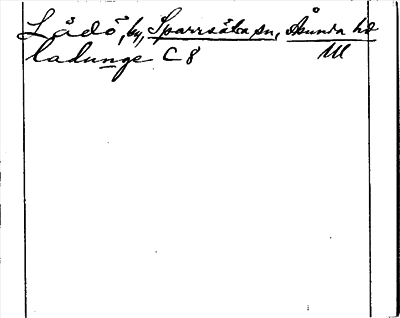 Lådö, by, Sparrsätra sn, Åsunda hd
ladunge C 8 Ul